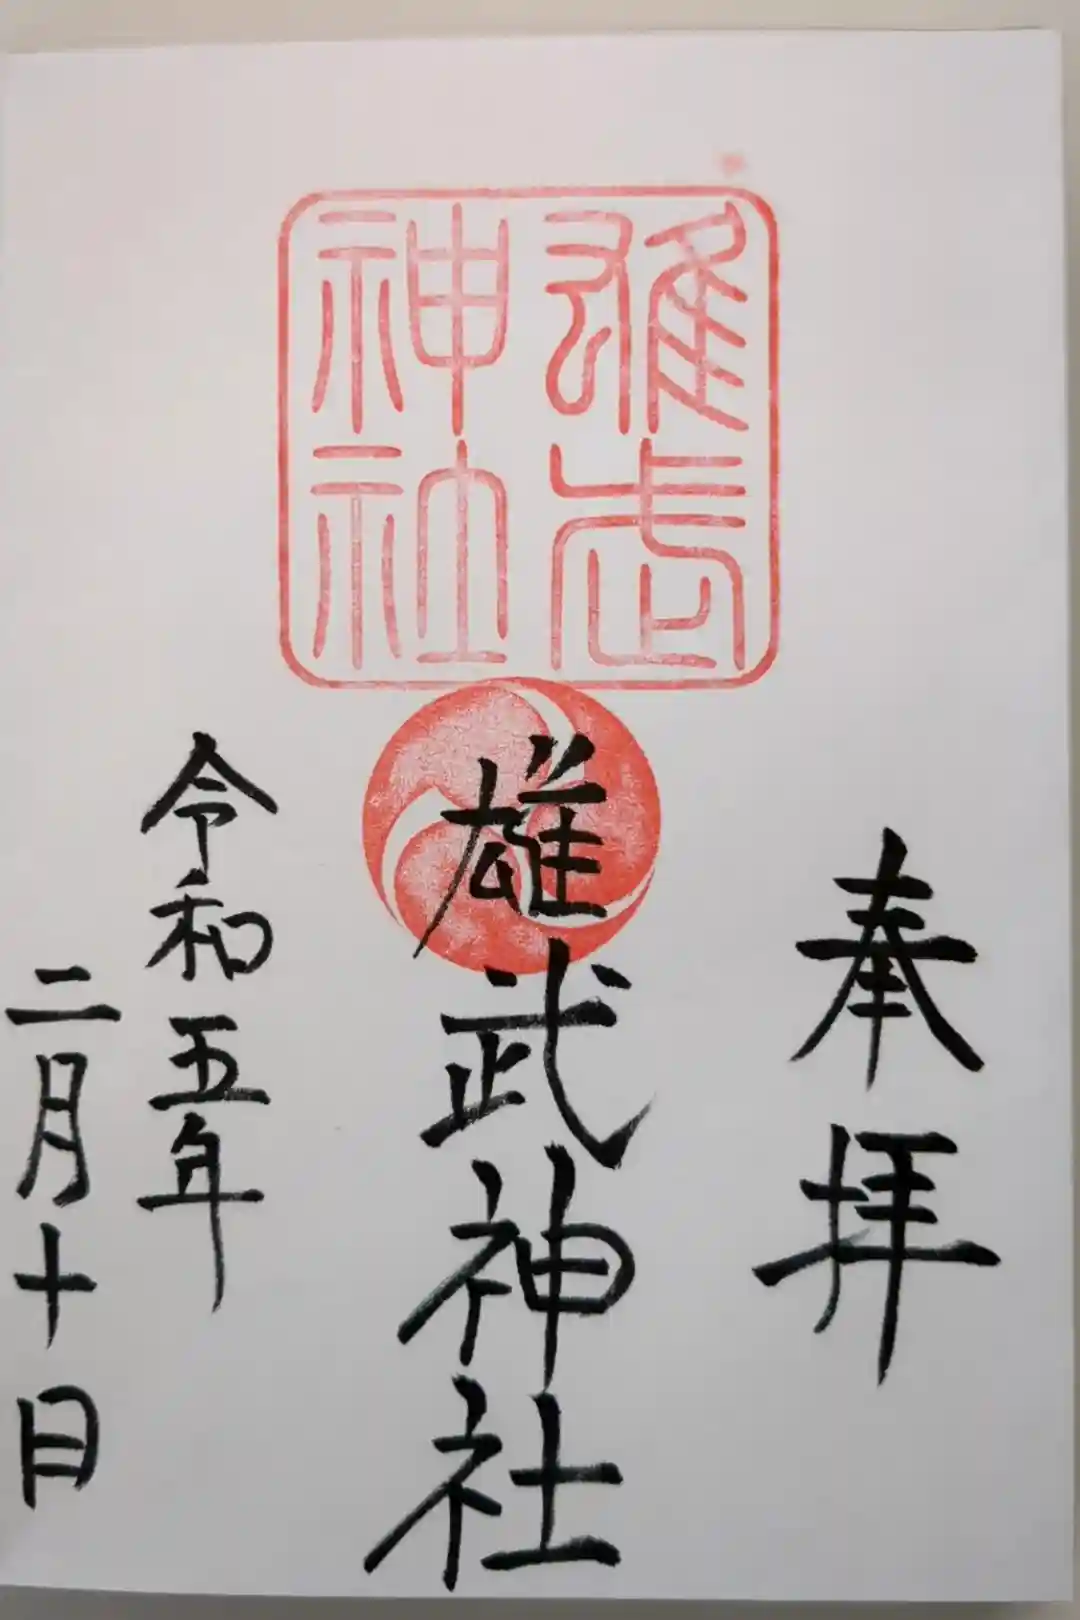 奉拝
雄武
神社
雄武神社
令和五年
二月十日